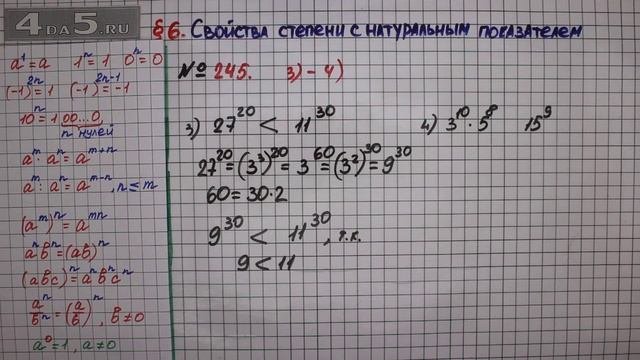 4DA5.RU
§ 6. Свойства степени с натуральным показателем
№ 245. 3) - 4)
a¹ = a 1ⁿ = 1 0ⁿ = 0
(-1)²ⁿ = 1 (-1)²ⁿ⁻¹ = -1
10ⁿ = 100...0,
n нулей
aᵐ · aⁿ = aᵐ⁺ⁿ
aᵐ : aⁿ = aᵐ⁻ⁿ, n ≤ m
(aᵐ)ⁿ = aᵐⁿ
aⁿbⁿ = (ab)ⁿ
(abc)ⁿ = aⁿbⁿcⁿ
aⁿ/bⁿ = (a/b)ⁿ, b ≠ 0
a⁰ = 1, a ≠ 0
3) 27²⁰ < 11³⁰
27²⁰ = (3³)²⁰ = 3⁶⁰ = (3²)³⁰ = 9³⁰
60 = 30 · 2
9³⁰ < 11³⁰, т.к.
9 < 11
4) 3¹⁰ · 5⁸ 15⁹